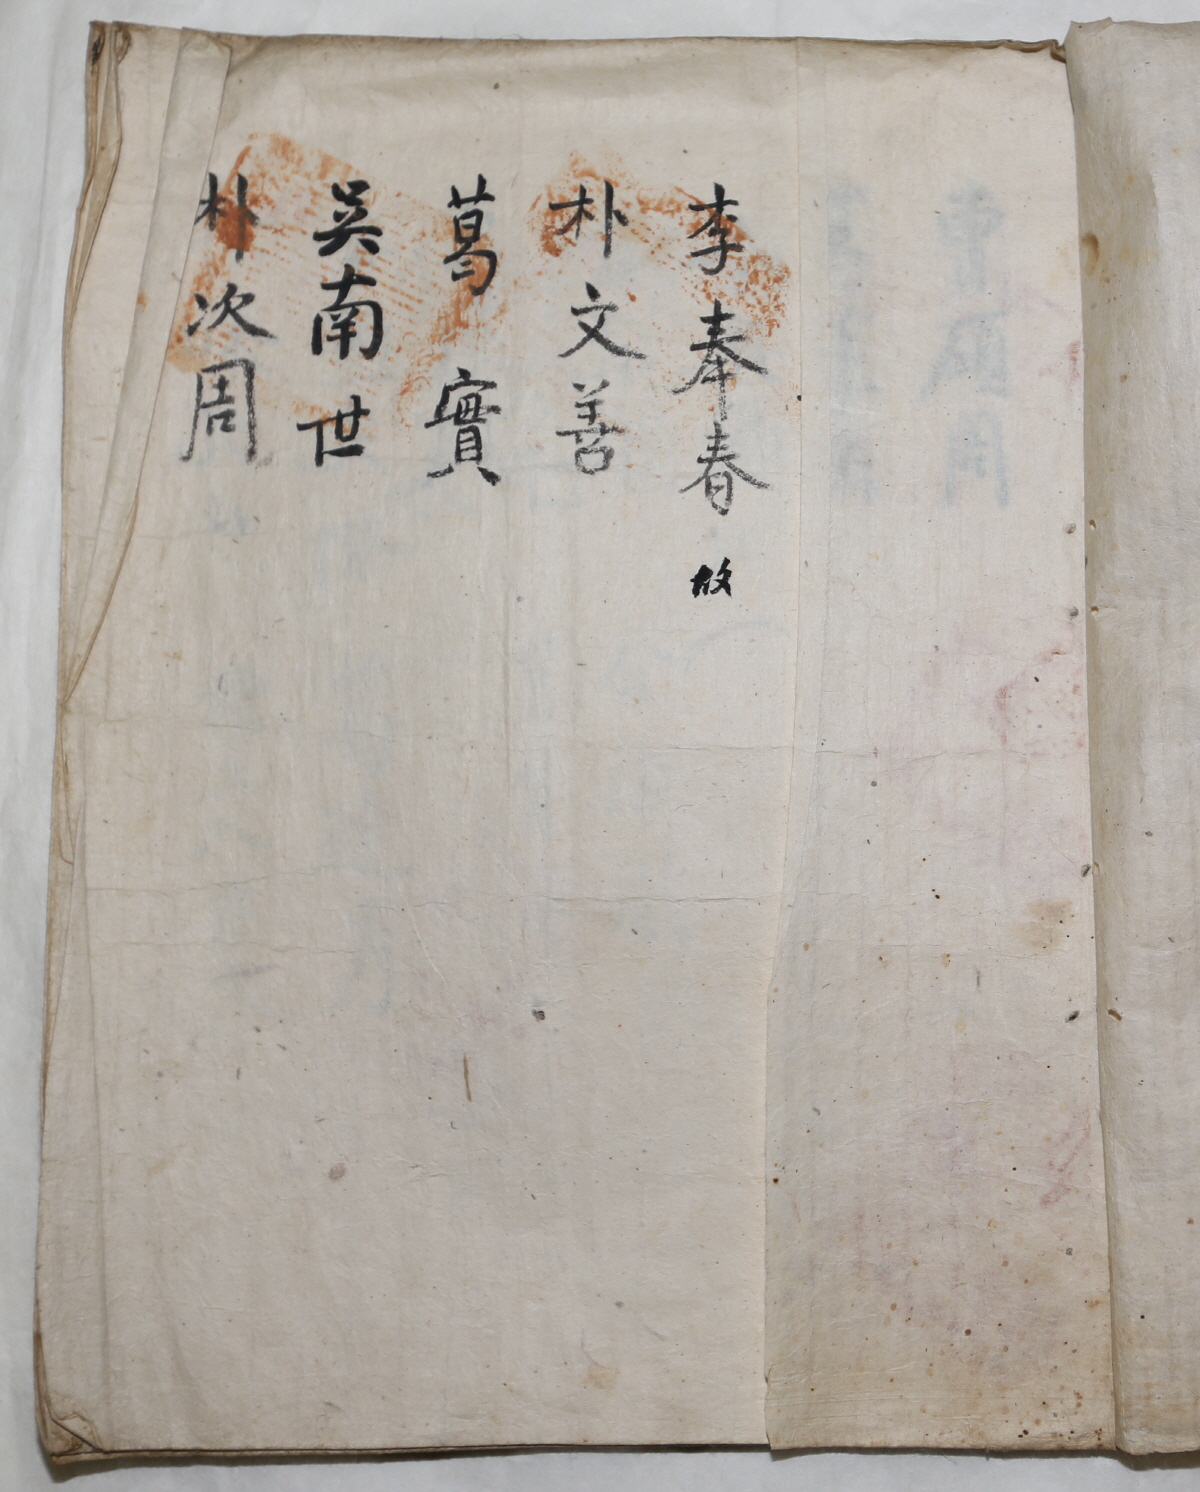 李奉春 故
朴文善
葛實
吳南世
朴次周